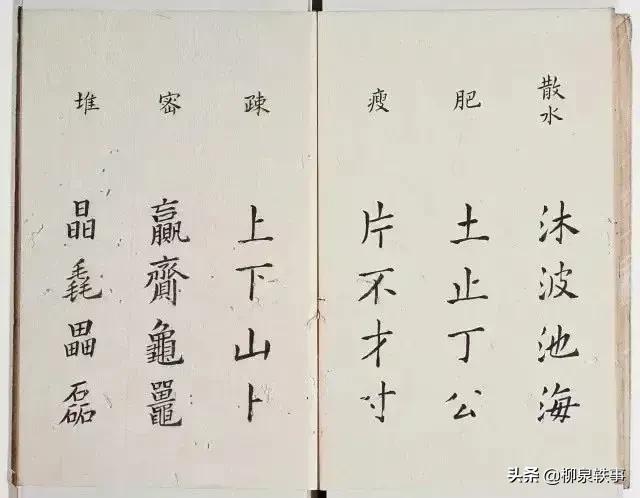 散水 沐波池海
肥 土止丁公
瘦 片不才寸
疎 上下山卜
宻 贏齎龜鼉
堆 晶毳畾磊
头条 @柳泉轶事